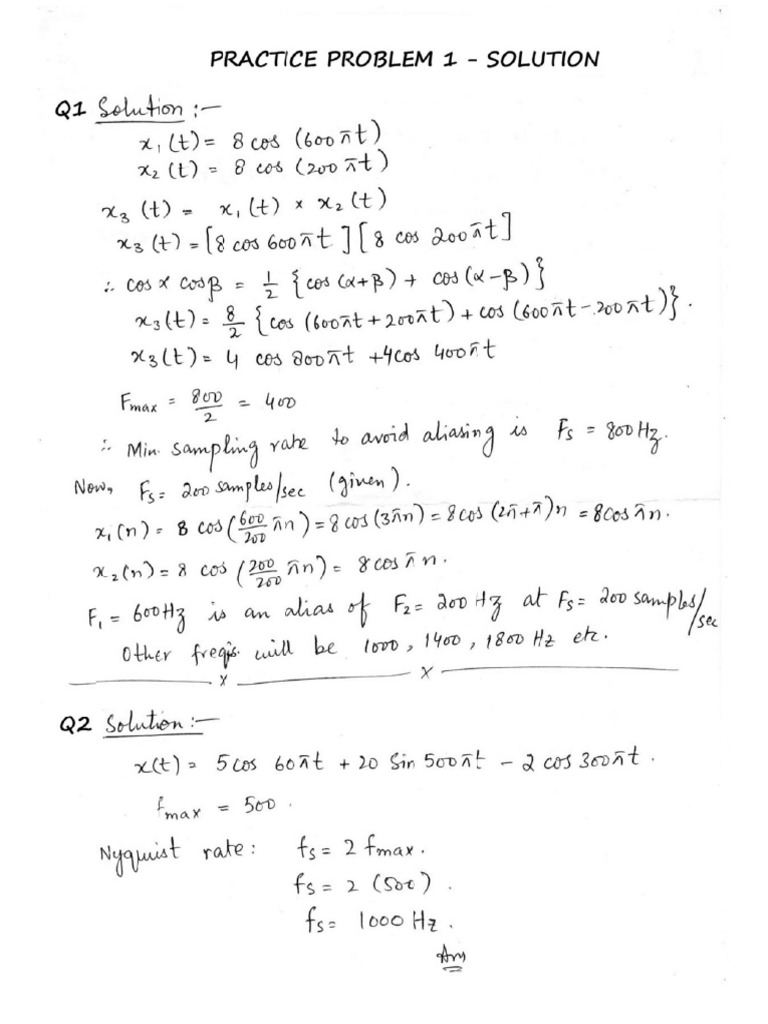 PRACTICE PROBLEM 1 - SOLUTION
Q1 Solution :-
x₁(t) = 8 cos (600πt)
x₂(t) = 8 cos (200πt)
x₃(t) = x₁(t) × x₂(t)
x₃(t) = [8 cos 600πt] [8 cos 200πt]
∴ cos α cos β = 1/2 {cos (α+β) + cos (α-β)}
x₃(t) = 8/2 {cos (600πt + 200πt) + cos (600πt - 200πt)}.
x₃(t) = 4 cos 800πt + 4 cos 400πt
Fmax = 800/2 = 400
∴ Min. sampling rate to avoid aliasing is Fs = 800 Hz.
Now, Fs = 200 samples/sec (given).
x₁(n) = 8 cos (600/200 πn) = 8 cos (3πn) = 8 cos (2π+π)n = 8 cos πn.
x₂(n) = 8 cos (200/200 πn) = 8 cos πn.
F₁ = 600 Hz is an alias of F₂ = 200 Hz at Fs = 200 samples/sec
Other freqs. will be 1000, 1400, 1800 Hz etc.
x x
Q2 Solution :-
x(t) = 5 cos 60πt + 20 Sin 500πt - 2 cos 300πt.
fmax = 500.
Nyquist rate: fs = 2 fmax.
fs = 2 (500).
fs = 1000 Hz.
Ans